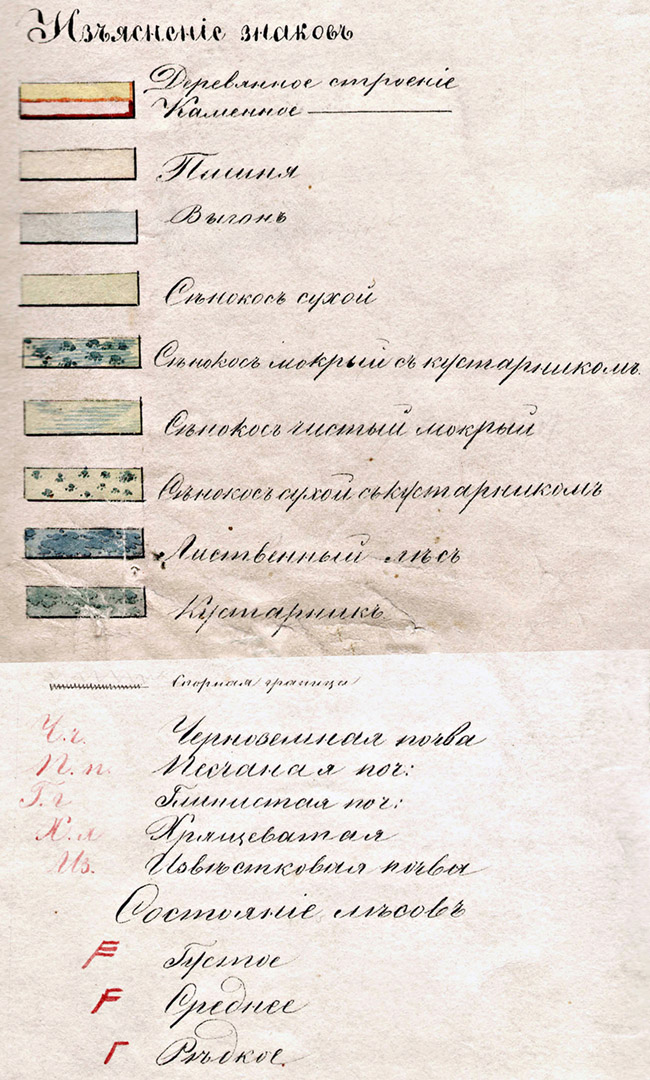 Изъясненіе знаковъ
Деревянное строеніе
Каменное
Пашня
Выгонъ
Сѣнокосъ сухой
Сѣнокосъ мокрый съ кустарникомъ.
Сѣнокосъ чистый мокрый
Сѣнокосъ сухой съ кустарникомъ
Лиственный лѣсъ
Кустарникъ
Спорная граница
Ч. г. Черноземная почва
П. п. Песчаная поч:
Г. г Глинистая поч:
Хрящеватая
Из. Извѣстковая почва
Состояніе лѣсовъ
F Густое
F Среднее
Г Рѣдкое.